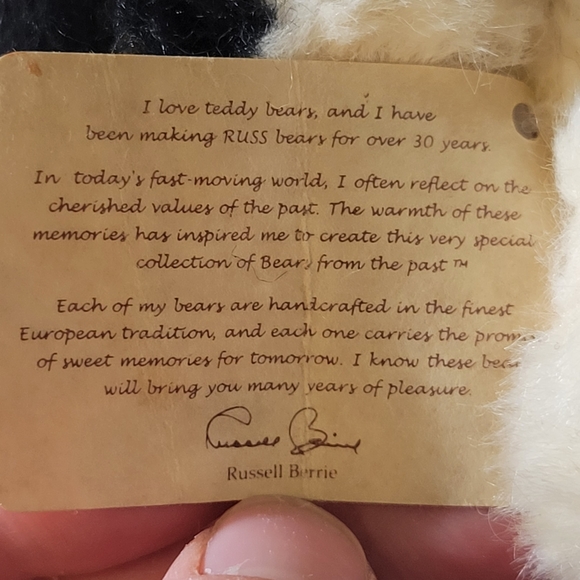 I love teddy bears, and I have
been making RUSS bears for over 30 years.
In today's fast-moving world, I often reflect on the
cherished values of the past. The warmth of these
memories has inspired me to create this very special
collection of Bears from the past ™
Each of my bears are handcrafted in the finest
European tradition, and each one carries the
of sweet memories for tomorrow. I know these
will bring you many years of pleasure.
Russell Berrie
Russell Berrie